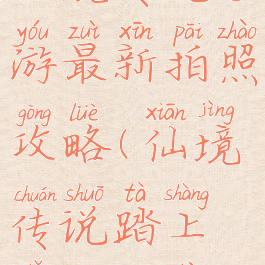 yóu zuì xīn pāi zhào
游最新拍照
gōng lüè xiān jìng
攻略(仙境
chuán shuō tà shàng
传说踏上